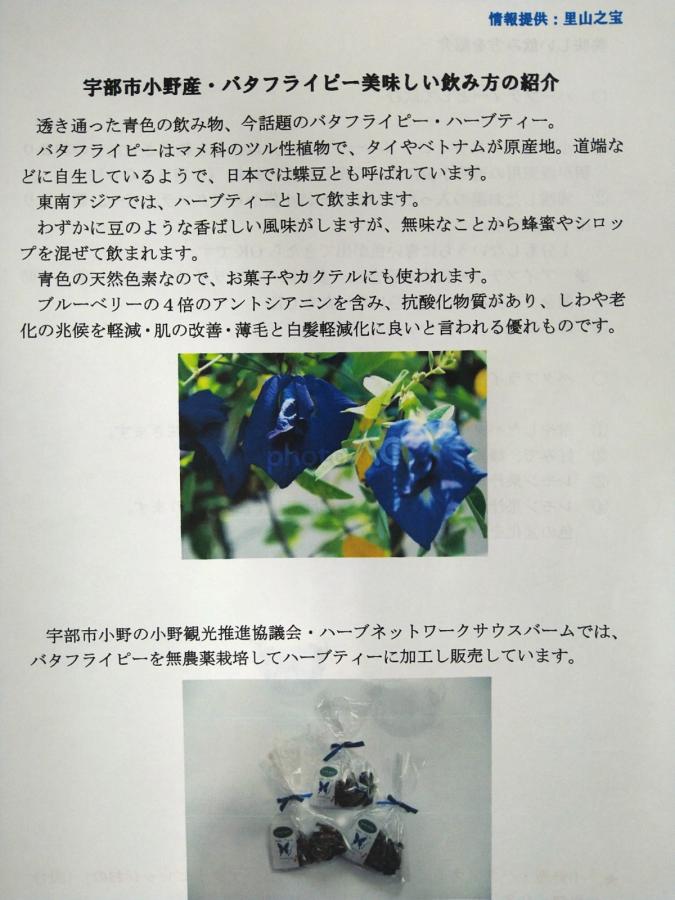 情報提供：里山之宝
宇部市小野産・バタフライピー美味しい飲み方の紹介
透き通った青色の飲み物、今話題のバタフライピー・ハーブティー。
バタフライピーはマメ科のツル性植物で、タイやベトナムが原産地。道端な
どに自生しているようで、日本では蝶豆とも呼ばれています。
東南アジアでは、ハーブティーとして飲まれます。
わずかに豆のような香ばしい風味がしますが、無味なことから蜂蜜やシロッ
プを混ぜて飲まれます。
青色の天然色素なので、お菓子やカクテルにも使われます。
ブルーベリーの４倍のアントシアニンを含み、抗酸化物質があり、しわや老
化の兆候を軽減・肌の改善・薄毛と白髪軽減化に良いと言われる優れものです。
宇部市小野の小野観光推進協議会・ハーブネットワークサウスバームでは、
バタフライピーを無農薬栽培してハーブティーに加工し販売しています。